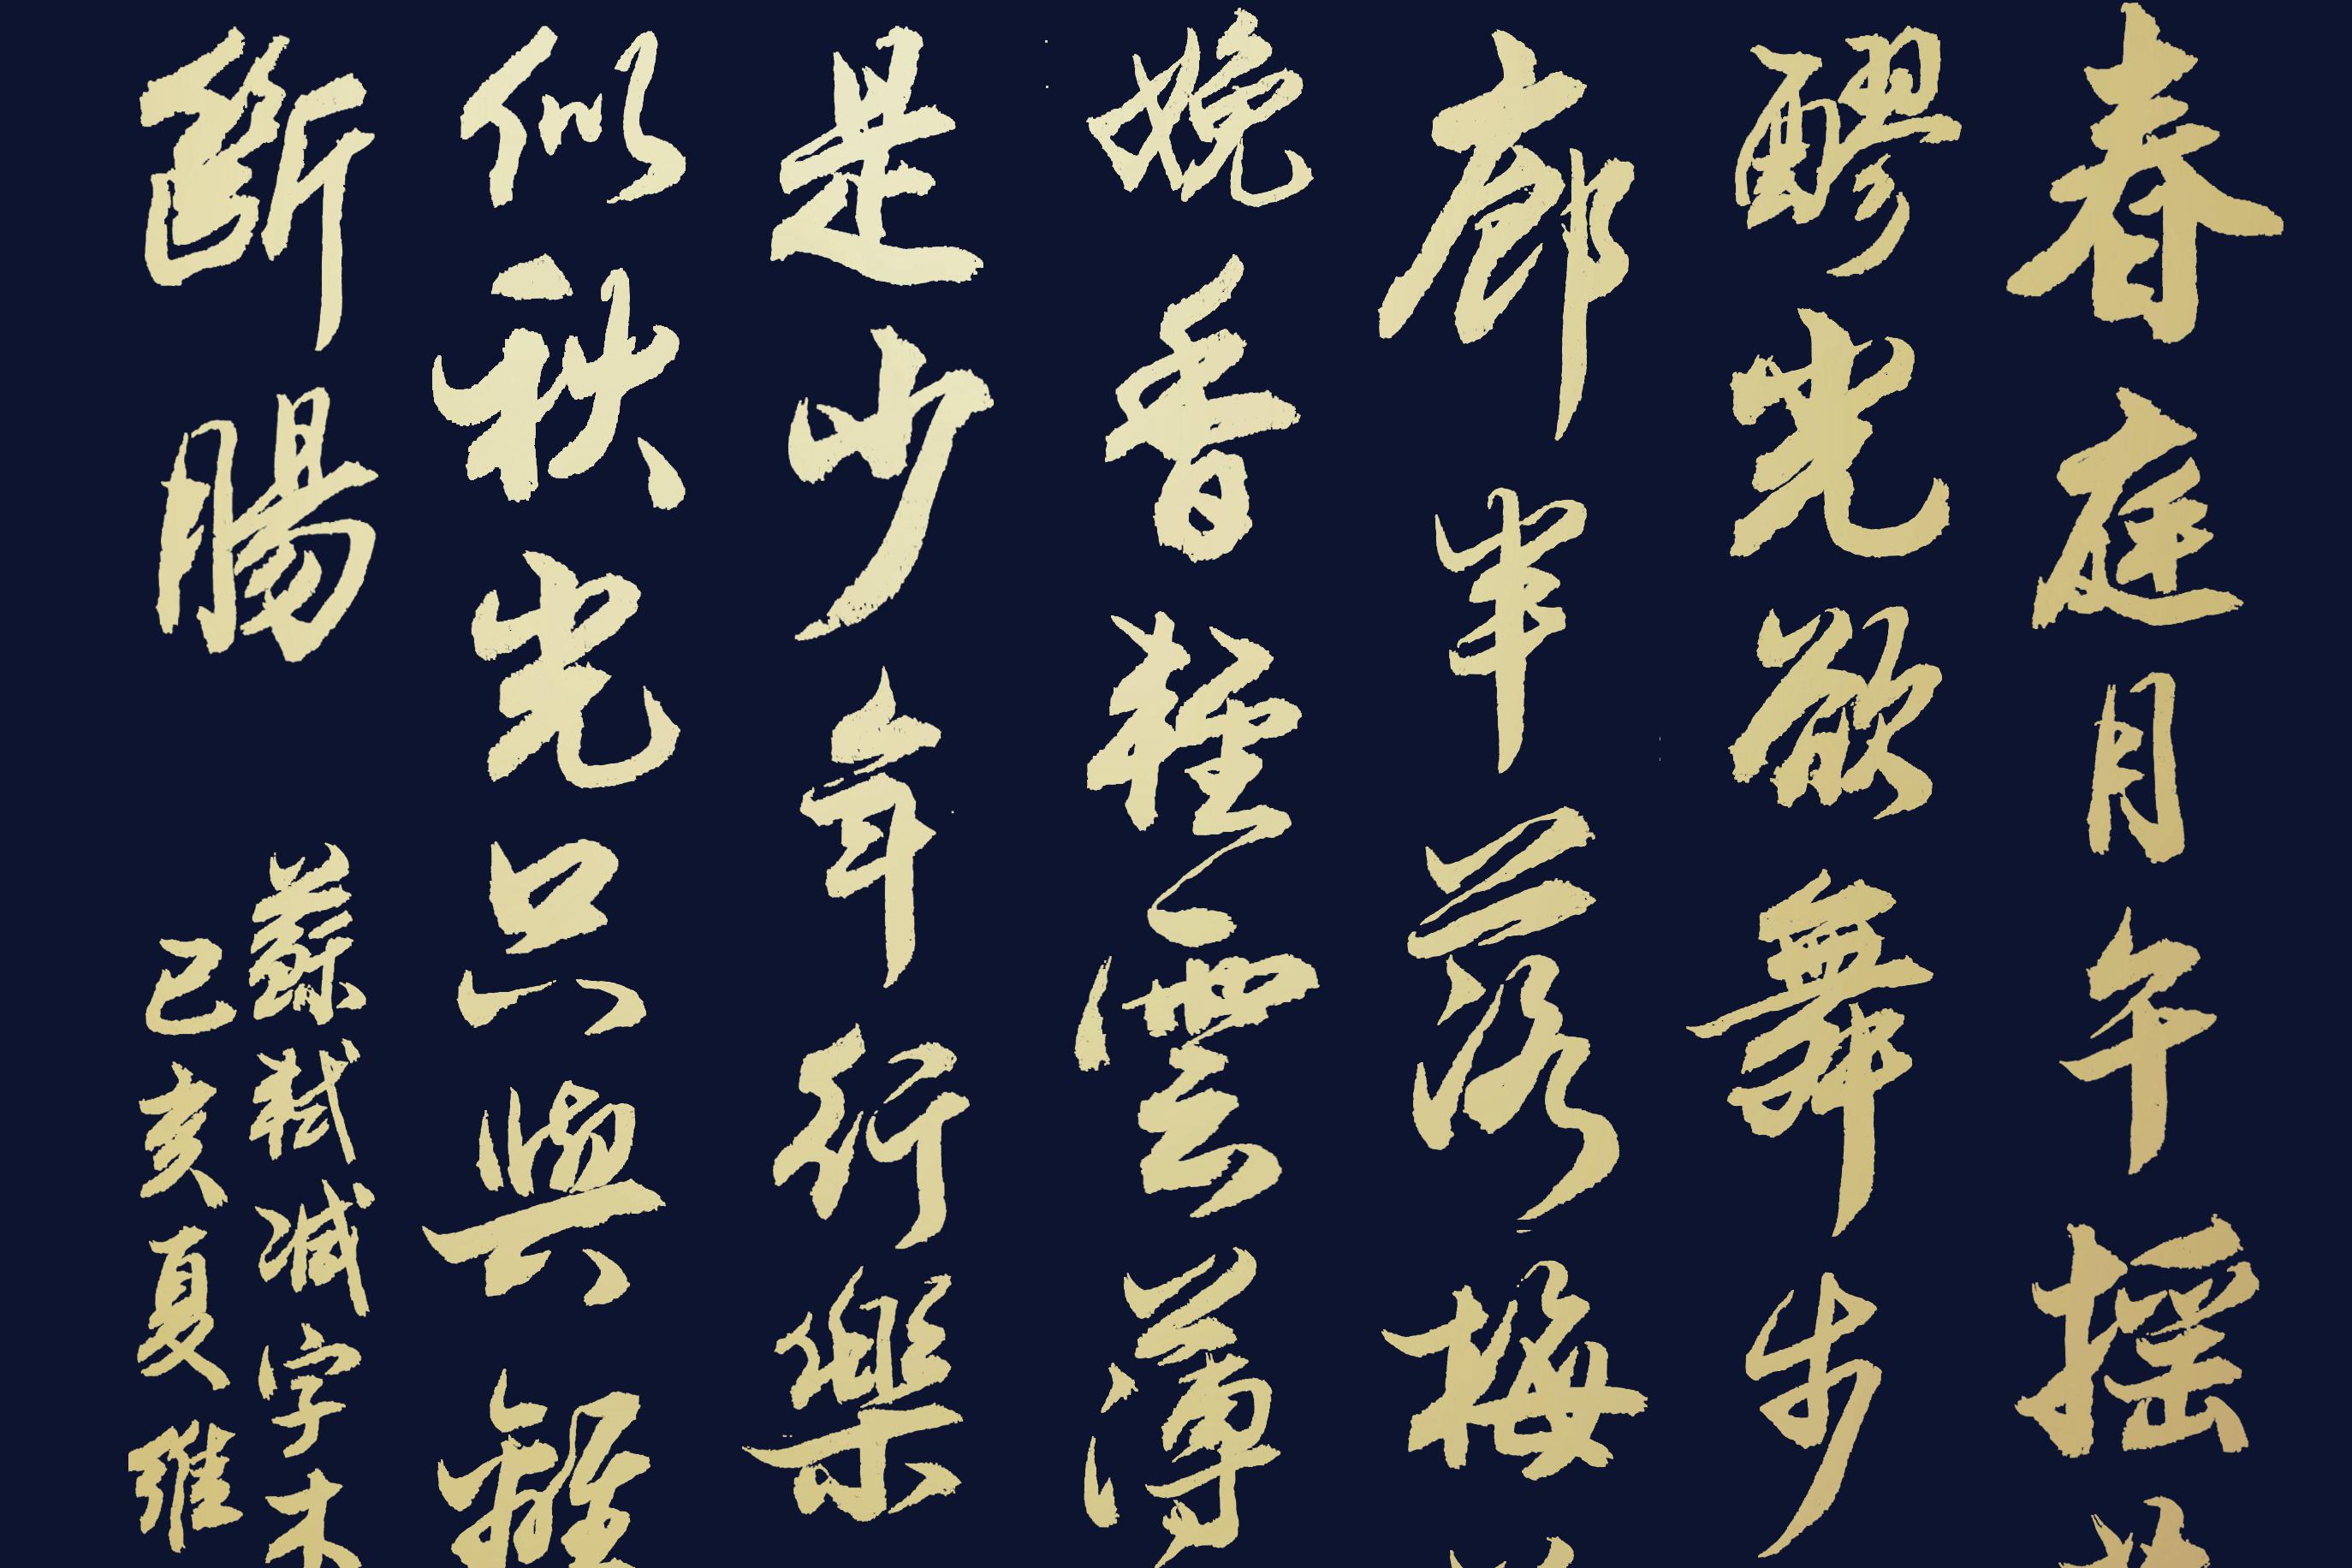 春庭月午摇
醪光欲舞步
廊半落梅
娩香輕雲薄
是少年行樂
似秋光只與離
斷腸
蘇軾減字木
己亥夏維